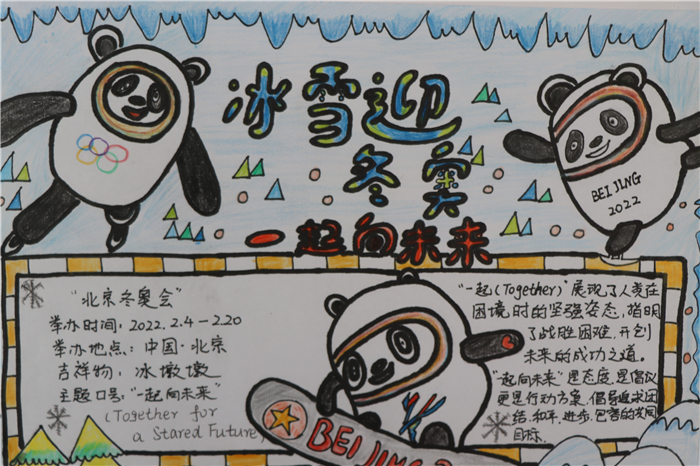 冰雪迎
冬奥
一起向未来
BEIJING
2022
"北京冬奥会"
举办时间：2022.2.4-2.20
举办地点：中国·北京
吉祥物：冰墩墩
主题口号："一起向未来"
(Together for
a Stared Future)
"一起(Together)"展现了人类在
困境时的坚强姿态，指明
了战胜困难、开创
未来的成功之道。
"一起向未来"是态度,是倡议
更是行动方案，倡导追求团
结、和平、进步、包容的共同
目标。
BEIJING 2